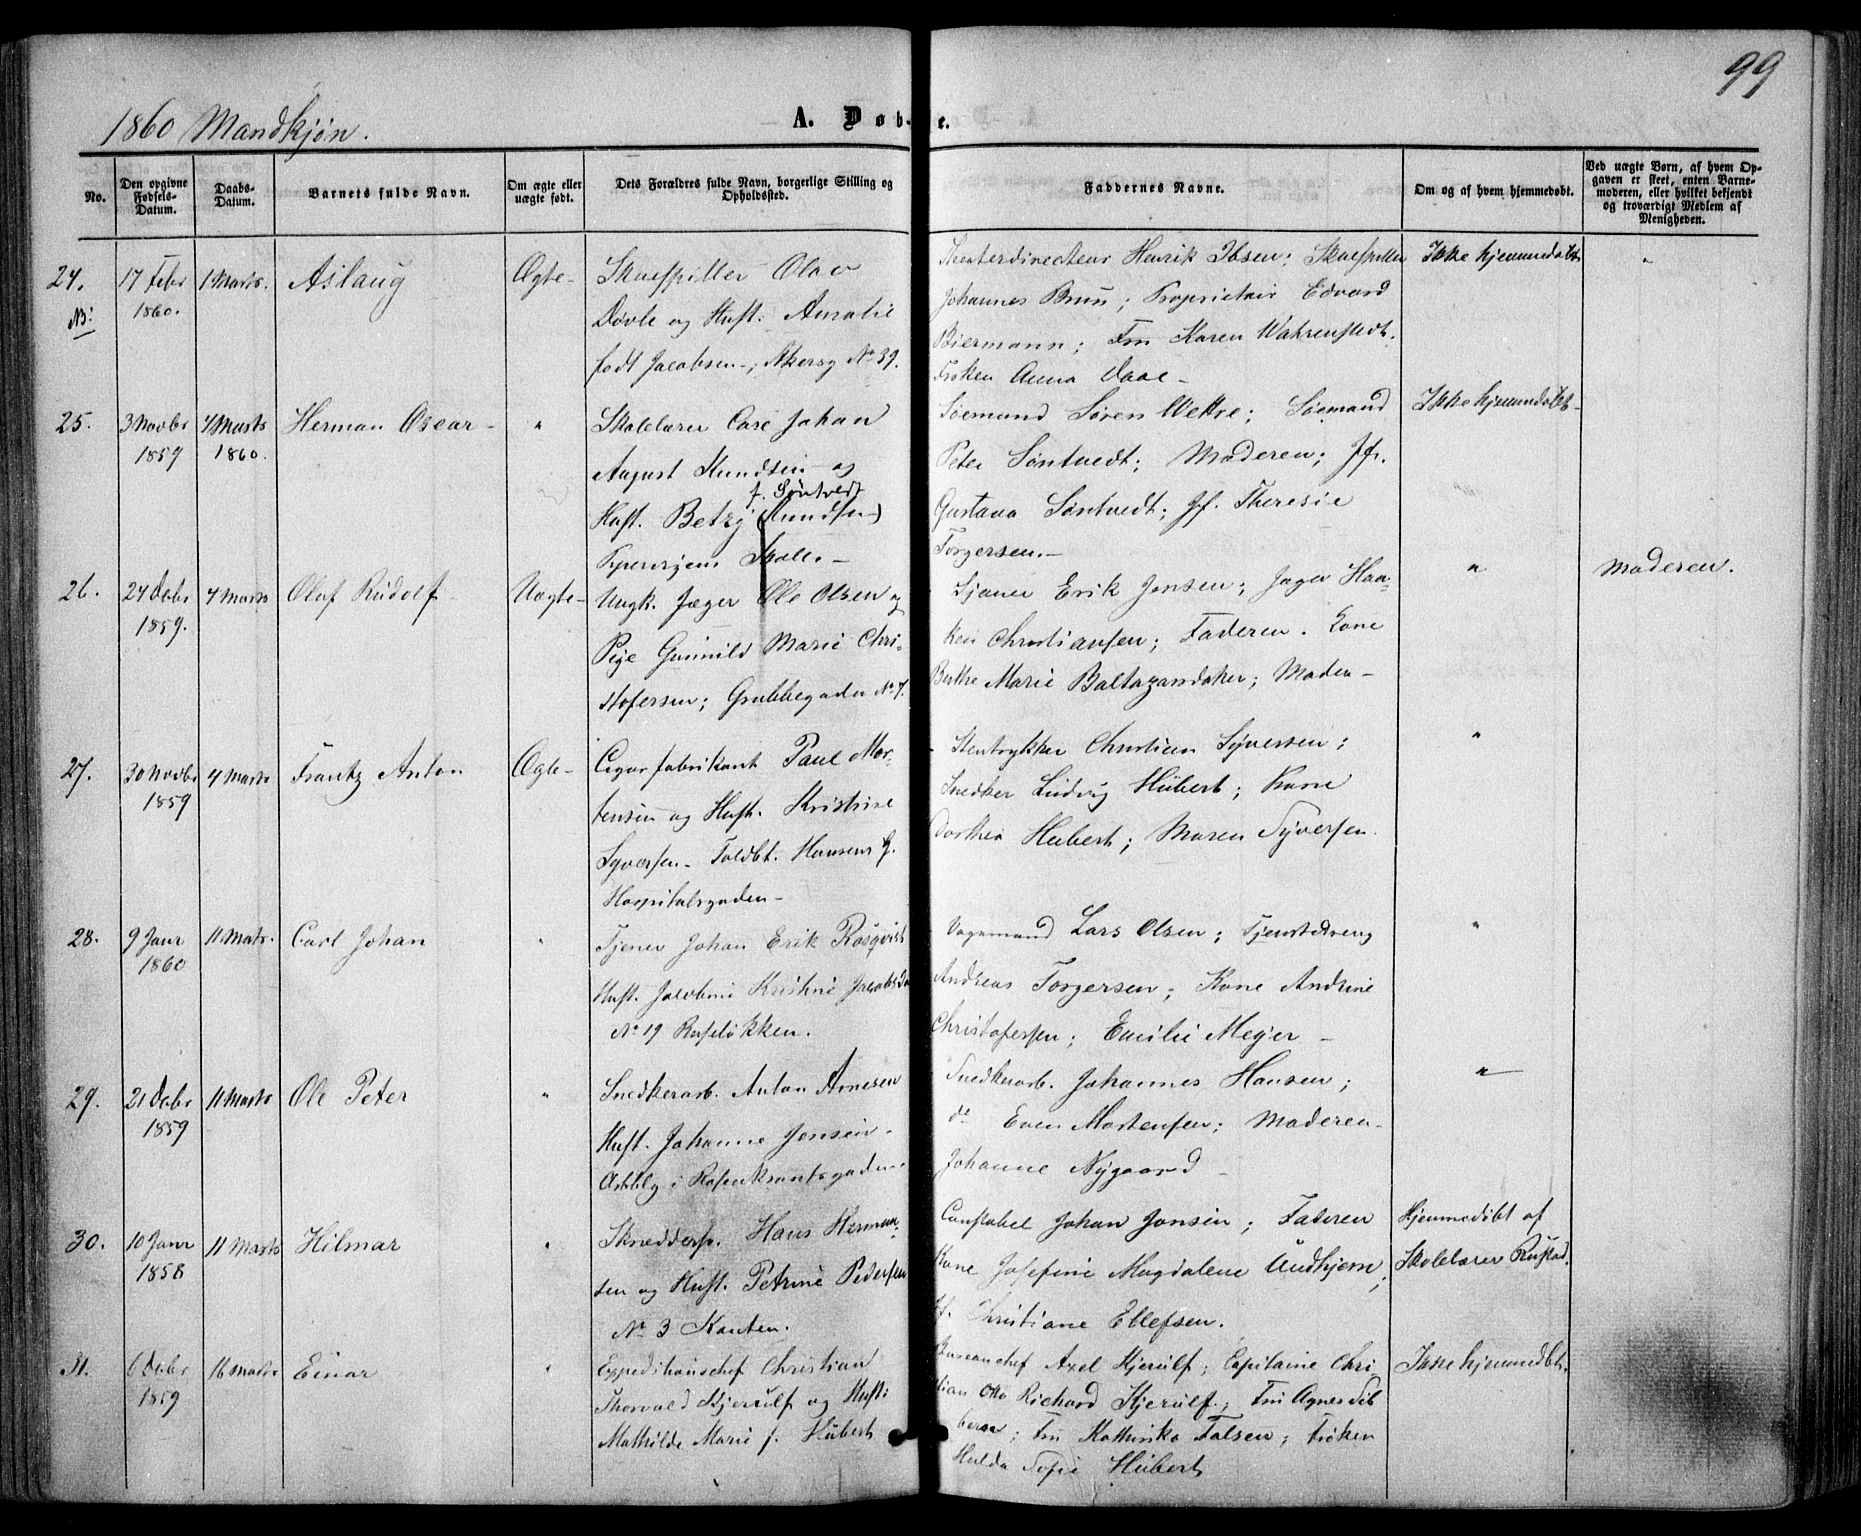 99
1860 Mandkjøn.
A. Døb- e.
No.
Den opgivne Fødsels-Datum.
Daabs-Datum.
Barnets fulde Navn.
Om ægte eller uægte født.
Dets Forældres fulde Navn, borgerlige Stilling og Opholdssted.
Faddernes Navne.
Om og af hvem hjemmedøbt.
Ved uægte Børn, af hvem Opgaven er skeet, enten Barnemoderen, eller hvilket bekjendt og troværdigt Medlem af Menigheden.
24. 17 Febr 1 Marts. Aslaug Ægte- Skuespiller Olav
NB: 1860.
Døvle og Hust. Amalie
født Jacobsen-, Akersg No 39.
Theaterdirecteur Henrik Ibsen; Skuespiller Ikke hjemmedøbt "
Johannes Brun; Proprietair Edvard
Biermann; Fru Karen Wahrenstedt.
Frøken Anna Daae-
25. 3 Novbr 4 Marts Herman Oscar- " Skolelærer Carl Johan
1859 1860.
August Knudsen og
f. Søntvedt
Hust. Betzy (Knudsen)
Pipervigens Skole.-
Sømand Søren Wettre; Sømand Ikke hjemmedøbt-
Peter Søntvedt; Moderen; Jfr.
Gustava Søntvedt; Jf. Theresie
Torgersen.-
26. 24 Debr 4 Marts Olaf Rudolf- Uægte- Ungk. Jæger Ole Olsen og
1859.
Pige Gunnild Marie Chri-
stofersen; Grubbegaden No 7.
Sjouer Erik Jensen; Jæger Haa- " Moderen.
ken Christiansen; Faderen. Kone
Berthe Marie Baltazarsdatter; Moder-
27. 30 Novbr 4 Marts Frantz Anton Ægte- Cigarfabrikant Paul Mor-
1859
tensen og Hust. Kristine
Syversen- Toldbt. Hansens G.
Hospitalsgaden-
Stentrykker Christian Syversen; "
Snedker Ludvig Hübert; Kone
Dorthea Hübert; Maren Syversen.
28. 9 Janr 11 Marts. Carl Johan " Tjener Johan Erik Rosqvist
1860
Hust. Jacobine Kristine Jacobsd
No 19 Ruseløkken.
Vognmand Lars Olsen; Tjenstedreng "
Andreas Torgersen; Kone Andrine
Christofersen; Emilie Meyer-
29. 21 Debr 11 Marts Ole Peter " Snedkerarb. Anton Arnesen
1859
Hust. Johanne Jensen-
i Rosenkrantsgaden-
Snedkerarb. Johannes Hansen; "
do Even Mortensen; Moderen-
Johanne Nygaard-
30. 10 Janr 11 Marts Hilmar " Skreddersv. Hans Herman-
1858
sen og Hust. Petrine Pedersen
No 3 Kanten.
Constabel Johan Jonsen; Faderen Hjemmedøbt af
Kone Josefine Magdalene Audhjem; Skolelærer Rustad.
Jf. Christiane Ellefsen.
31. 6 Debr 16 Marts Einar " Expeditionschef Christian
1859
Thorvald Kjerulf og Hust:
Mathilde Marie f. Hübert
Bureauchef Axel Kjerulf; Capitaine Chri Ikke hjemmedbt.
stian Otto Richard Kjerulf; Fru Agnes Sib
bern; Fru Kathinka Falsen; Frøken
Hulda Sofie Hübert